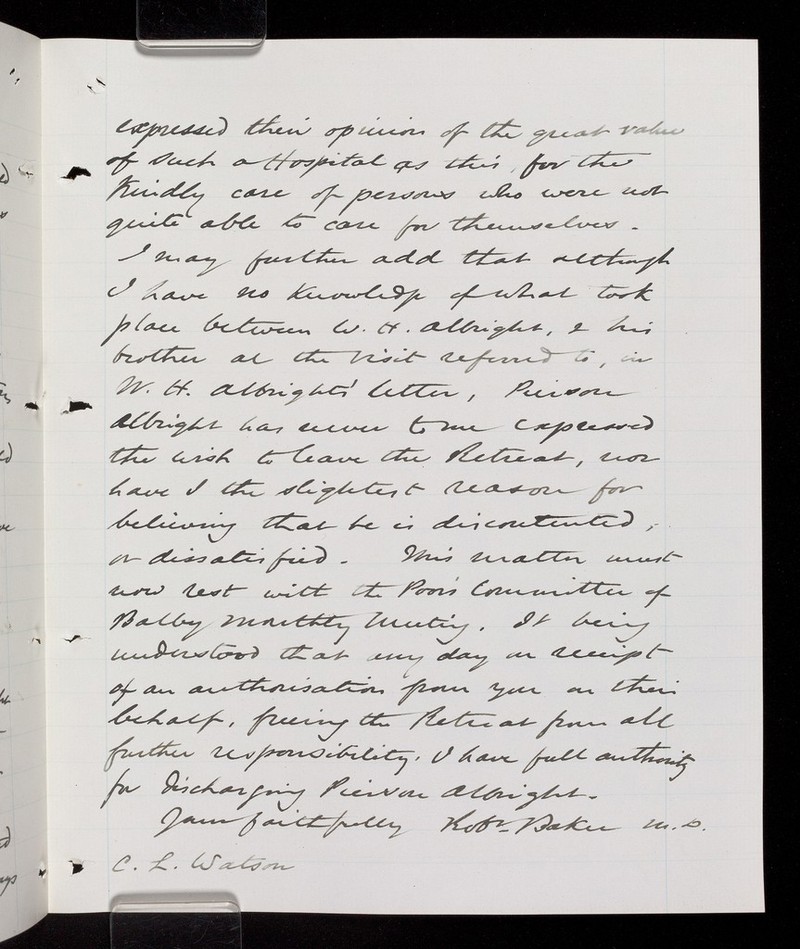 expressed their opinion of the great value
of such a Hospital as this, for the
kindly care of persons who were not
quite able to care for themselves.
I may further add that although
I have no knowledge of what took
place between W. H. Albright, & his
brother at the visit referred to, in
W. H. Albrights' letter, Pierson
Albright has never to me expressed
the wish to leave the Retreat, nor
have I the slightest reason for
believing that he is discontented,
or dissatisfied. This matter must
now rest with the Poor's Committee of
Balby Monthly Meeting. It being
understood that any day on receipt
of an authorisation from you on their
behalf, freeing the Retreat from all
further responsibility. I have full authority
for discharging Pierson Albright.
Yours faithfully Robt. Baker M.D.
C. L. Watson